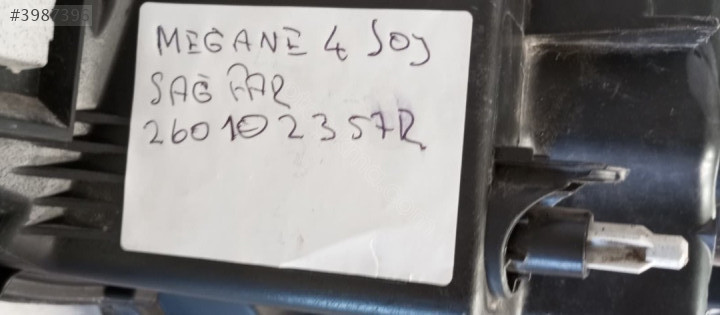 #3987395
MEGANE 4 SOJ
SAĞ FAR
260102357R